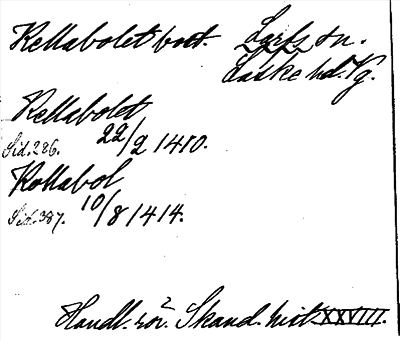 Kellabolet bort. Larfs sn.
Laske hd. Vg.
Kellabolet
Sid. 286. 22/2 1410.
Kollabol
Sid. 387. 10/8 1414.
Handl. rör. Skand. hist. XXVIII.